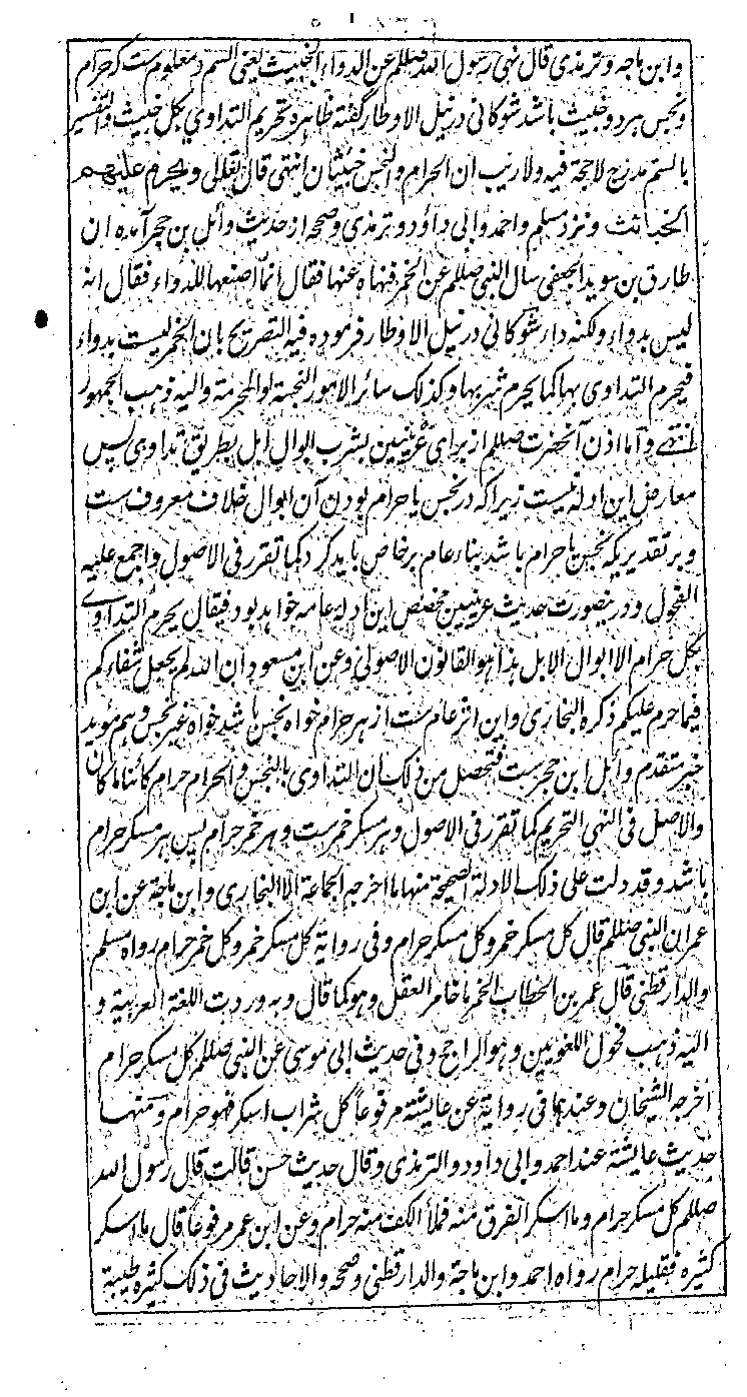 وابن ماجه وترمذی قال نهی رسول الله صللم عن الدواء الخبیث یعنی السم ومعلوم ست که حرام
ونجس هردو خبیث باشد شوکانی در نیل الاوطار گفته ظاهره تحریم التداوی بکل خبیث والتفسیر
بالسم مدرج لاحجة فیه ولاریب ان الحرام والنجس خبیثان انتهی قال تعالی ویحرم علیهم
الخبائث ونزد مسلم واحمد وابی داؤد وترمذی وصححه از حدیث وائل بن حجر آمده ان
طارق بن سوید الجعفی سال النبی صللم عن الخمر فنهاه عنها فقال انما اصنعها للدواء فقال انه
لیس بدواء ولکنه داء شوکانی در نیل الاوطار فرموده فیه التصریح بان الخمر لیست بدواء
فیحرم التداوی بها کما یحرم شربها وکذلک سائر الامور النجسة او المحرمة والیه ذهب الجمهور
انتهے واما اذن آنحضرت صللم از برای عرنیین بشرب ابوال ابل بطریق تداوی پس
معارض این ادله نیست زیراکه در نجس یا حرام بودن آن ابوال خلاف معروف ست
وبر تقدیریکه نجس یا حرام باشد بناء عام بر خاص باید کرد کما تقرر فی الاصول واجمع علیه
الفحول ودرینصورت حدیث عرنیین مخصص این ادله عامه خواهد بود فیقال یحرم التداوے
بکل حرام الا ابوال الابل هذا هو القانون الاصولی وعن ابن مسعود ان الله لم یجعل شفاءکم
فیما حرم علیکم ذکره البخاری واین اثر عام ست از هر حرام خواه نجس باشد خواه غیر نجس وهم مؤید
خبر متقدم وائل ابن حجرست فتحصل من ذلک ان التداوی بالنجس والحرام حرام کائنا ما کان
والاصل فی النهی التحریم کما تقرر فی الاصول وهر مسکر خمرست وهر خمر حرام پس هر مسکر حرام
باشد وقد دلت علی ذلک الادلة الصحیحة منها ما اخرجه الجماعة الا البخاری وابن ماجة عن ابن
عمر ان النبی صللم قال کل مسکر خمر وکل مسکر حرام وفی روایة کل مسکر خمر وکل خمر حرام رواه مسلم
والدارقطنی قال عمر بن الخطاب الخمر ما خامر العقل وهو کما قال وبه وردت اللغة العربیة و
الیه ذهب فحول اللغویین وهو الراجح وفی حدیث ابی موسی عن النبی صللم کل مسکر حرام
اخرجه الشیخان وعندهما فی روایة عن عایشة مرفوعا کل شراب اسکر فهو حرام ومنها
حدیث عایشة عند احمد وابی داود والترمذی وقال حدیث حسن قالت قال رسول الله
صللم کل مسکر حرام وما اسکر الفرق منه فملأ الکف منه حرام وعن ابن عمر مرفوعا قال ما اسکر
کثیره فقلیله حرام رواه احمد وابن ماجة والدارقطنی وصححه والاحادیث فی ذلک کثیرة طیبة